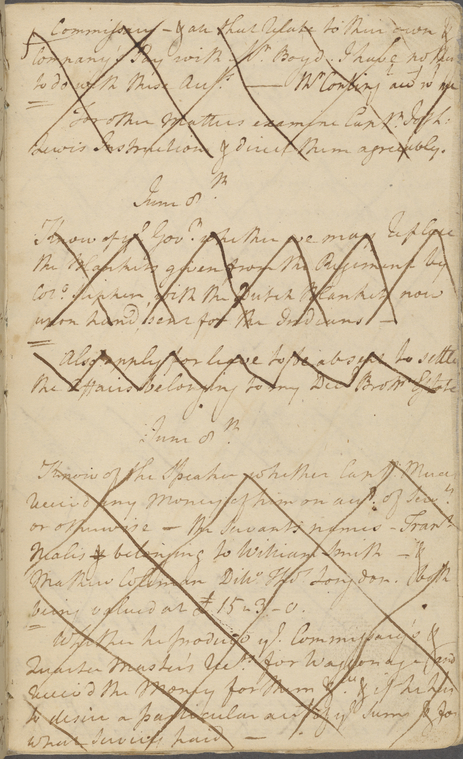 Commissary - & are that relate to their own &
Company's Pay with - Mr. Boyd. I have nothin
to do with these Accts. —
For other matters examine Captn. Josh:
Lewis Instruction & direct them agreeably.
June 8th.
Know of ye. Govr. whether we may replace
the Blankets given from the Regiment by
Colo. Stephen, with the Dutch Blankets now
upon hand, sent for the Indians —
Also apply for leave to be absent to settle
the Affairs belonging to my Decd. Brothrs. Estate
June 8th.
Know of the Speaker whether Captn. Merce
receivd any Money of him on acct. of Servts.
or otherwise — the Servants names - Frans.
Malis & belonging to William Smith - &
Mathew Coleman Ditto. Thos. Longdon. (both
being valued at £15-3-0.
Whether he producd ye. Commissary's &
Quarter Master's Rects. for Waggonage (and
receivd the Money for them &ca. & if he has
to desire a particular acct. of ye. Sums & for
what Services paid —